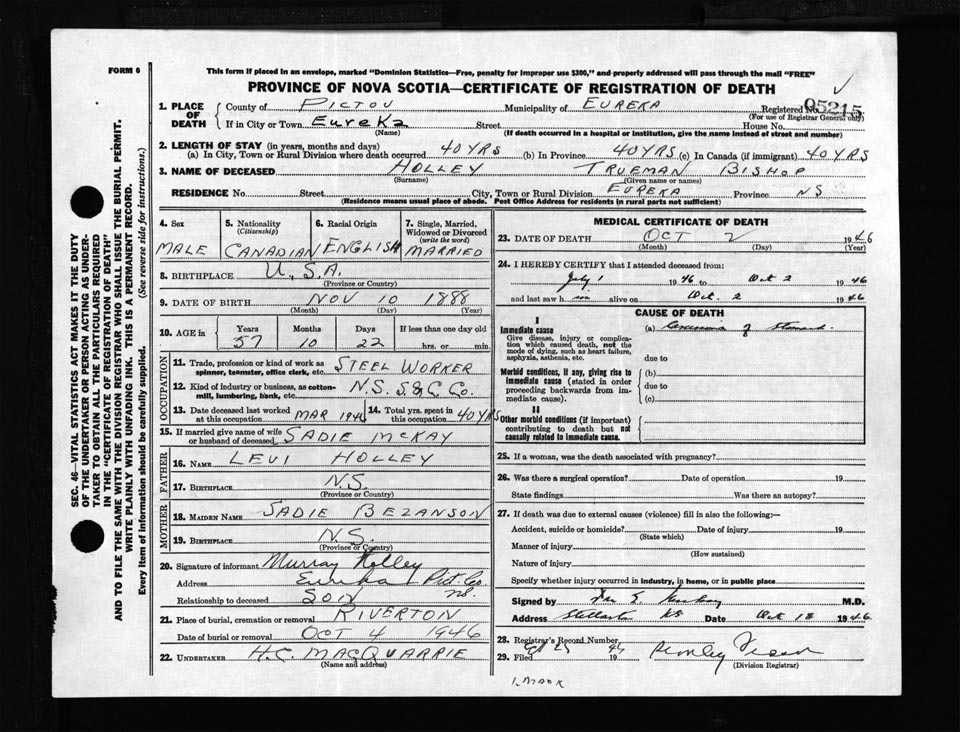 FORM 6
This form if placed in an envelope, marked "Dominion Statistics—Free, penalty for improper use $300," and properly addressed will pass through the mail "FREE"
PROVINCE OF NOVA SCOTIA—CERTIFICATE OF REGISTRATION OF DEATH
1. PLACE OF DEATH
County of PICTOU Municipality of EUREKA Registered No. 05215
(For use of Registrar General only)
If in City or Town EUREKA Street House No.
(Name) (If death occurred in a hospital or institution, give the name instead of street and number)
2. LENGTH OF STAY (in years, months and days)
(a) In City, Town or Rural Division where death occurred 40 YRS (b) In Province 40 YRS (c) In Canada (if immigrant) 40 YRS
3. NAME OF DECEASED HOLLEY TRUEMAN BISHOP
(Surname) (Given name or names)
RESIDENCE No. Street City, Town or Rural Division EUREKA Province NS
(Residence means usual place of abode. Post Office Address for residents in rural parts not sufficient)
4. Sex 5. Nationality (Citizenship) 6. Racial Origin 7. Single, Married, Widowed or Divorced (write the word)
MALE CANADIAN ENGLISH MARRIED
8. BIRTHPLACE U.S.A.
(Province or Country)
9. DATE OF BIRTH NOV 10 1888
(Month) (Day) (Year)
10. AGE in Years Months Days If less than one day old
57 10 22 hrs. or min.
OCCUPATION
11. Trade, profession or kind of work as spinner, teamster, office clerk, etc. STEEL WORKER
12. Kind of industry or business, as cotton-mill, lumbering, bank, etc. N.S. S.& C. Co.
13. Date deceased last worked at this occupation MAR 1946 14. Total yrs. spent in this occupation 40 YRS
15. If married give name of wife or husband of deceased SADIE MCKAY
FATHER
16. NAME LEVI HOLLEY
17. BIRTHPLACE N.S.
(Province or Country)
MOTHER
18. MAIDEN NAME SADIE BEZANSON
19. BIRTHPLACE N.S.
(Province or Country)
20. Signature of informant Murray Holley
Address Eureka Pict. Co. NS.
Relationship to deceased SON
21. Place of burial, cremation or removal RIVERTON
Date of burial or removal OCT 4 1946
22. UNDERTAKER H.C. MACQUARRIE
(Name and address)
MEDICAL CERTIFICATE OF DEATH
23. DATE OF DEATH OCT 2 1946
(Month) (Day) (Year)
24. I HEREBY CERTIFY that I attended deceased from:
July 1 1946 to Oct 2 1946
and last saw him alive on Oct. 2 1946
CAUSE OF DEATH
I
Immediate cause (a) Carcinoma of Stomach
Give disease, injury or complication which caused death, not the mode of dying, such as heart failure, asphyxia, asthenia, etc. due to
Morbid conditions, if any, giving rise to immediate cause (stated in order proceeding backwards from immediate cause). (b)
due to
(c)
II
Other morbid conditions (if important) contributing to death but not causally related to immediate cause.
25. If a woman, was the death associated with pregnancy?
26. Was there a surgical operation? Date of operation 19
State findings Was there an autopsy?
27. If death was due to external causes (violence) fill in also the following:—
Accident, suicide or homicide? Date of injury 19
(State which)
Manner of injury
(How sustained)
Nature of injury
Specify whether injury occurred in industry, in home, or in public place
Signed by M.D.
Address Stellarton NS Date Oct 18 1946
28. Registrar's Record Number
29. Filed 19
(Division Registrar)
SEC. 46—VITAL STATISTICS ACT MAKES IT THE DUTY
OF THE UNDERTAKER OR PERSON ACTING AS UNDER-
TAKER TO OBTAIN ALL THE PARTICULARS REQUIRED
IN THE "CERTIFICATE OF REGISTRATION OF DEATH"
AND TO FILE THE SAME WITH THE DIVISION REGISTRAR WHO SHALL ISSUE THE BURIAL PERMIT.
WRITE PLAINLY WITH UNFADING INK. THIS IS A PERMANENT RECORD.
Every item of information should be carefully supplied. (See reverse side for instructions.)